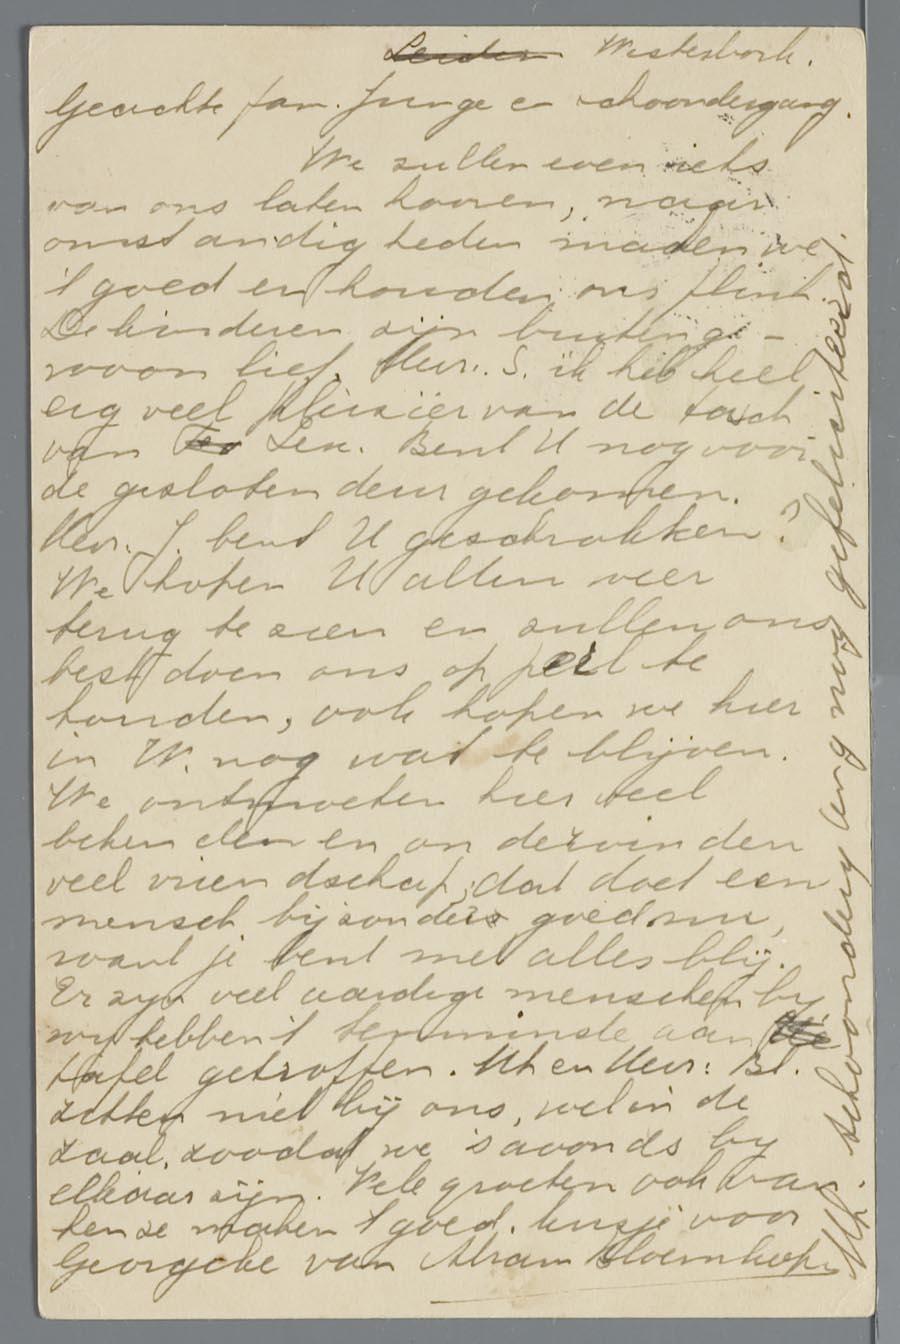 Leiden Westerbork.
Geachte fam. Junge en Schoondergang.
We zullen even iets
van ons laten hooren, naar
omstandigheden maken we
't goed en houden ons flink.
De kinderen zijn buitenge-
woon lief. Mevr. S. ik heb heel
erg veel plezier van de tasch
van Leni. Bent U nog voor
de gesloten deur gekomen.
Mevr. J. bent U geschrokken?
We hopen U allen weer
terug te zien en zullen ons
best doen ons op peil te
houden, ook hopen we hier
in W. nog wat te blijven.
We ontmoeten hier veel
bekenden en ondervinden
veel vriendschap, dat doet een
mensch bijzonders goed nu,
want je bent met alles blij.
Er zijn veel aardige menschen by
wy hebben 't tenminste aan
tafel getroffen. Mh en Mevr: Bl.
zitten niet bij ons, wel in de
zaal, zoodat we 's avonds by
elkaar zijn. Vele groeten ook van
hen ze maken 't goed. kusje voor
Georgche van Abram Bloemhof
Mh. Schoonderg. en J nog gefeliciteerd.